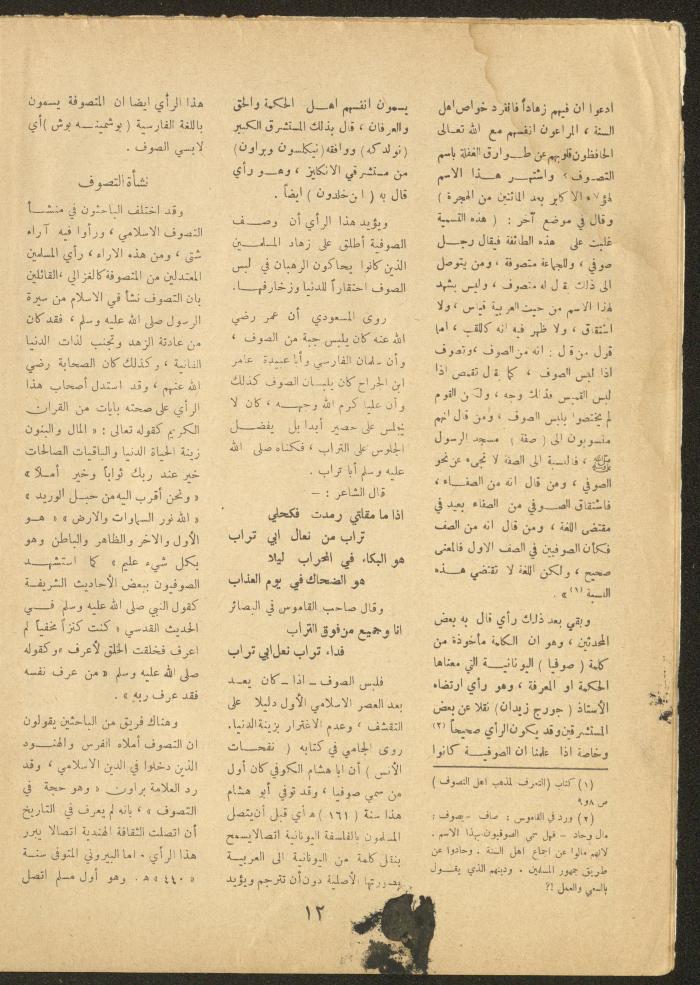 ادعوا ان فيهم زهاداً فانفرد خواص اهل
السنة ، المراعون انفسهم مع الله تعالى
الحافظون قلوبهم عن طوارق الغفلة باسم
التصوف ، واشتهر هذا الاسم
لهؤلاء الاكابر بعد المائتين من الهجرة )
وقال في موضع آخر : ( هذه التسمية
غلبت على هذه الطائفة فيقال رجل
صوفي ، وللجماعة متصوفة ، ومن يتوصل
الى ذلك يقال له متصوف ، وليس يشهد
لهذا الاسم من حيث العربية قياس ، ولا
اشتقاق ، ولا ظهر فيه انه كاللقب ، أما
قول من قال : انه من الصوف ، وتصوف
اذا لبس الصوف ، كما يقال تقمص اذا
لبس القميص فذلك وجه ، ولكن القوم
لم يختصوا بلبس الصوف ، ومن قال انهم
منسوبون الى ( صفة ) مسجد الرسول
ﷺ ، فالنسبة الى الصفة لا تجيء عن نحو
الصوفي ، ومن قال انه من الصفاء ،
فاشتقاق الصوفي من الصفاء بعيد في
مقتضى اللغة ، ومن قال انه من الصف
فكأن الصوفيين في الصف الاول فالمعنى
صحيح ، ولكن اللغة لا تقتضي هذه
النسبة (١) » .
وبقي بعد ذلك رأي قال به بعض
المحدثين ، وهو ان الكلمة مأخوذة من
كلمة ( صوفيا ) اليونانية التي معناها
الحكمة او المعرفة ، وهو رأي ارتضاه
الأستاذ ( جورج زيدان ) نقلا عن بعض
المستشرقين وقد يكون الرأي صحيحاً (٢)
وخاصة اذا علمنا ان الصوفية كانوا
(١) كتاب ( التعرف لمذهب اهل التصوف )
ص ٨و٩
(٢) ورد في القاموس : صاف - يصوف :
مال وحاد - فهل سمي الصوفيون بهذا الاسم .
لانهم مالوا عن اجماع اهل السنة . وحادوا عن
طريق جمهور المسلمين . ودينهم الذي يقول
بالسعي والعمل !?
يسمون انفسهم اهل الحكمة والحق
والعرفان ، قال بذلك المستشرق الكبير
( نولدكه ) ووافقه ( نيكلسون وبراون )
من مستشرقي الانكليز ، وهو رأي
قال به ( ابن خلدون ) ايضاً .
ويؤيد هذا الرأي أن وصف
الصوفية أطلق على زهاد المسلمين
الذين كانوا يحاكون الرهبان في لبس
الصوف احتقاراً للدنيا وزخارفها .
روى المسعودي أن عمر رضي
الله عنه كان يلبس جبة من الصوف ،
وأن سلمان الفارسي وأبا عبيدة عامر
ابن الجراح كان يلبسان الصوف كذلك
وأن عليا كرم الله وجهه ، كان لا
يجلس على حصير أبدا بل يفضل
الجلوس على التراب ، فكناه صلى الله
عليه وسلم أبا تراب .
قال الشاعر : —
اذا ما مقلتي رمدت فكحلي
تراب من نعال ابي تراب
هو البكاء في المحراب ليلا
هو الضحاك في يوم العذاب
وقال صاحب القاموس في البصائر
انا وجميع من فوق التراب
فداء تراب نعل ابي تراب
فلبس الصوف - اذا - كان يعد
بعد العصر الاسلامي الأول دليلا على
التقشف ، وعدم الاغترار بزينة الدنيا .
روى الجامي في كتابه ( نفحات
الأنس ) أن ابا هشام الكوفي كان أول
من سمي صوفيا ، وقد توفي أبو هشام
هذا سنة ( ١٦١ ) ه أي قبل أن يتصل
المسلمون بالفلسفة اليونانية اتصالا يسمح
بنقل كلمة من اليونانية الى العربية
بصورتها الأصلية دون أن تترجم ويؤيد
هذا الرأي ايضا ان المتصوفة يسمون
باللغة الفارسية ( بوشمينه بوش ) أي
لابسي الصوف .
نشأة التصوف
وقد اختلف الباحثون في منشأ
التصوف الاسلامي ، ورأوا فيه آراء
شتى ، ومن هذه الاراء ، رأي المسلمين
المعتدلين من المتصوفة كالغزالي ، القائلين
بان التصوف نشأ في الاسلام من سيرة
الرسول صلى الله عليه وسلم ، فقد كان
من عادته الزهد وتجنب لذات الدنيا
الفانية ، وكذلك كان الصحابة رضي
الله عنهم ، وقد استدل أصحاب هذا
الرأي على صحته بايات من القران
الكريم كقوله تعالى : « المال والبنون
زينة الحياة الدنيا والباقيات الصالحات
خير عند ربك ثواباً وخير أملاً »
« ونحن أقرب اليه من حبل الوريد »
« الله نور السماوات والارض » « هو
الأول والاخر والظاهر والباطن وهو
بكل شيء عليم » كما استشهد
الصوفيون ببعض الأحاديث الشريفة
كقول النبي صلى الله عليه وسلم في
الحديث القدسي « كنت كنزاً مخفياً لم
اعرف فخلقت الخلق لأعرف » وكقوله
صلى الله عليه وسلم « من عرف نفسه
فقد عرف ربه » .
وهناك فريق من الباحثين يقولون
ان التصوف أملاه الفرس والهنود
الذين دخلوا في الدين الاسلامي ، وقد
رد العلامة براون « وهو حجة في
التصوف » ، بانه لم يعرف في التاريخ
أن اتصلت الثقافة الهندية اتصالا يبرر
هذا الرأي ، اما البيروني المتوفى سنة
« ٤٤٠ » ه . وهو أول مسلم اتصل
١٢